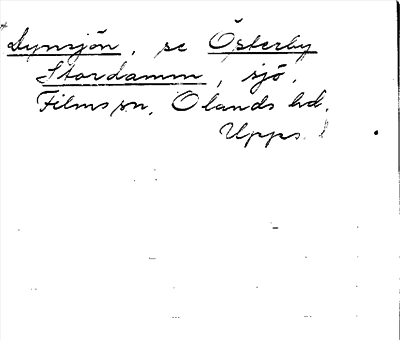 Dynsjön, se Österby
Stordamm, sjö.
Films sn, Olands hd.
Upps. l